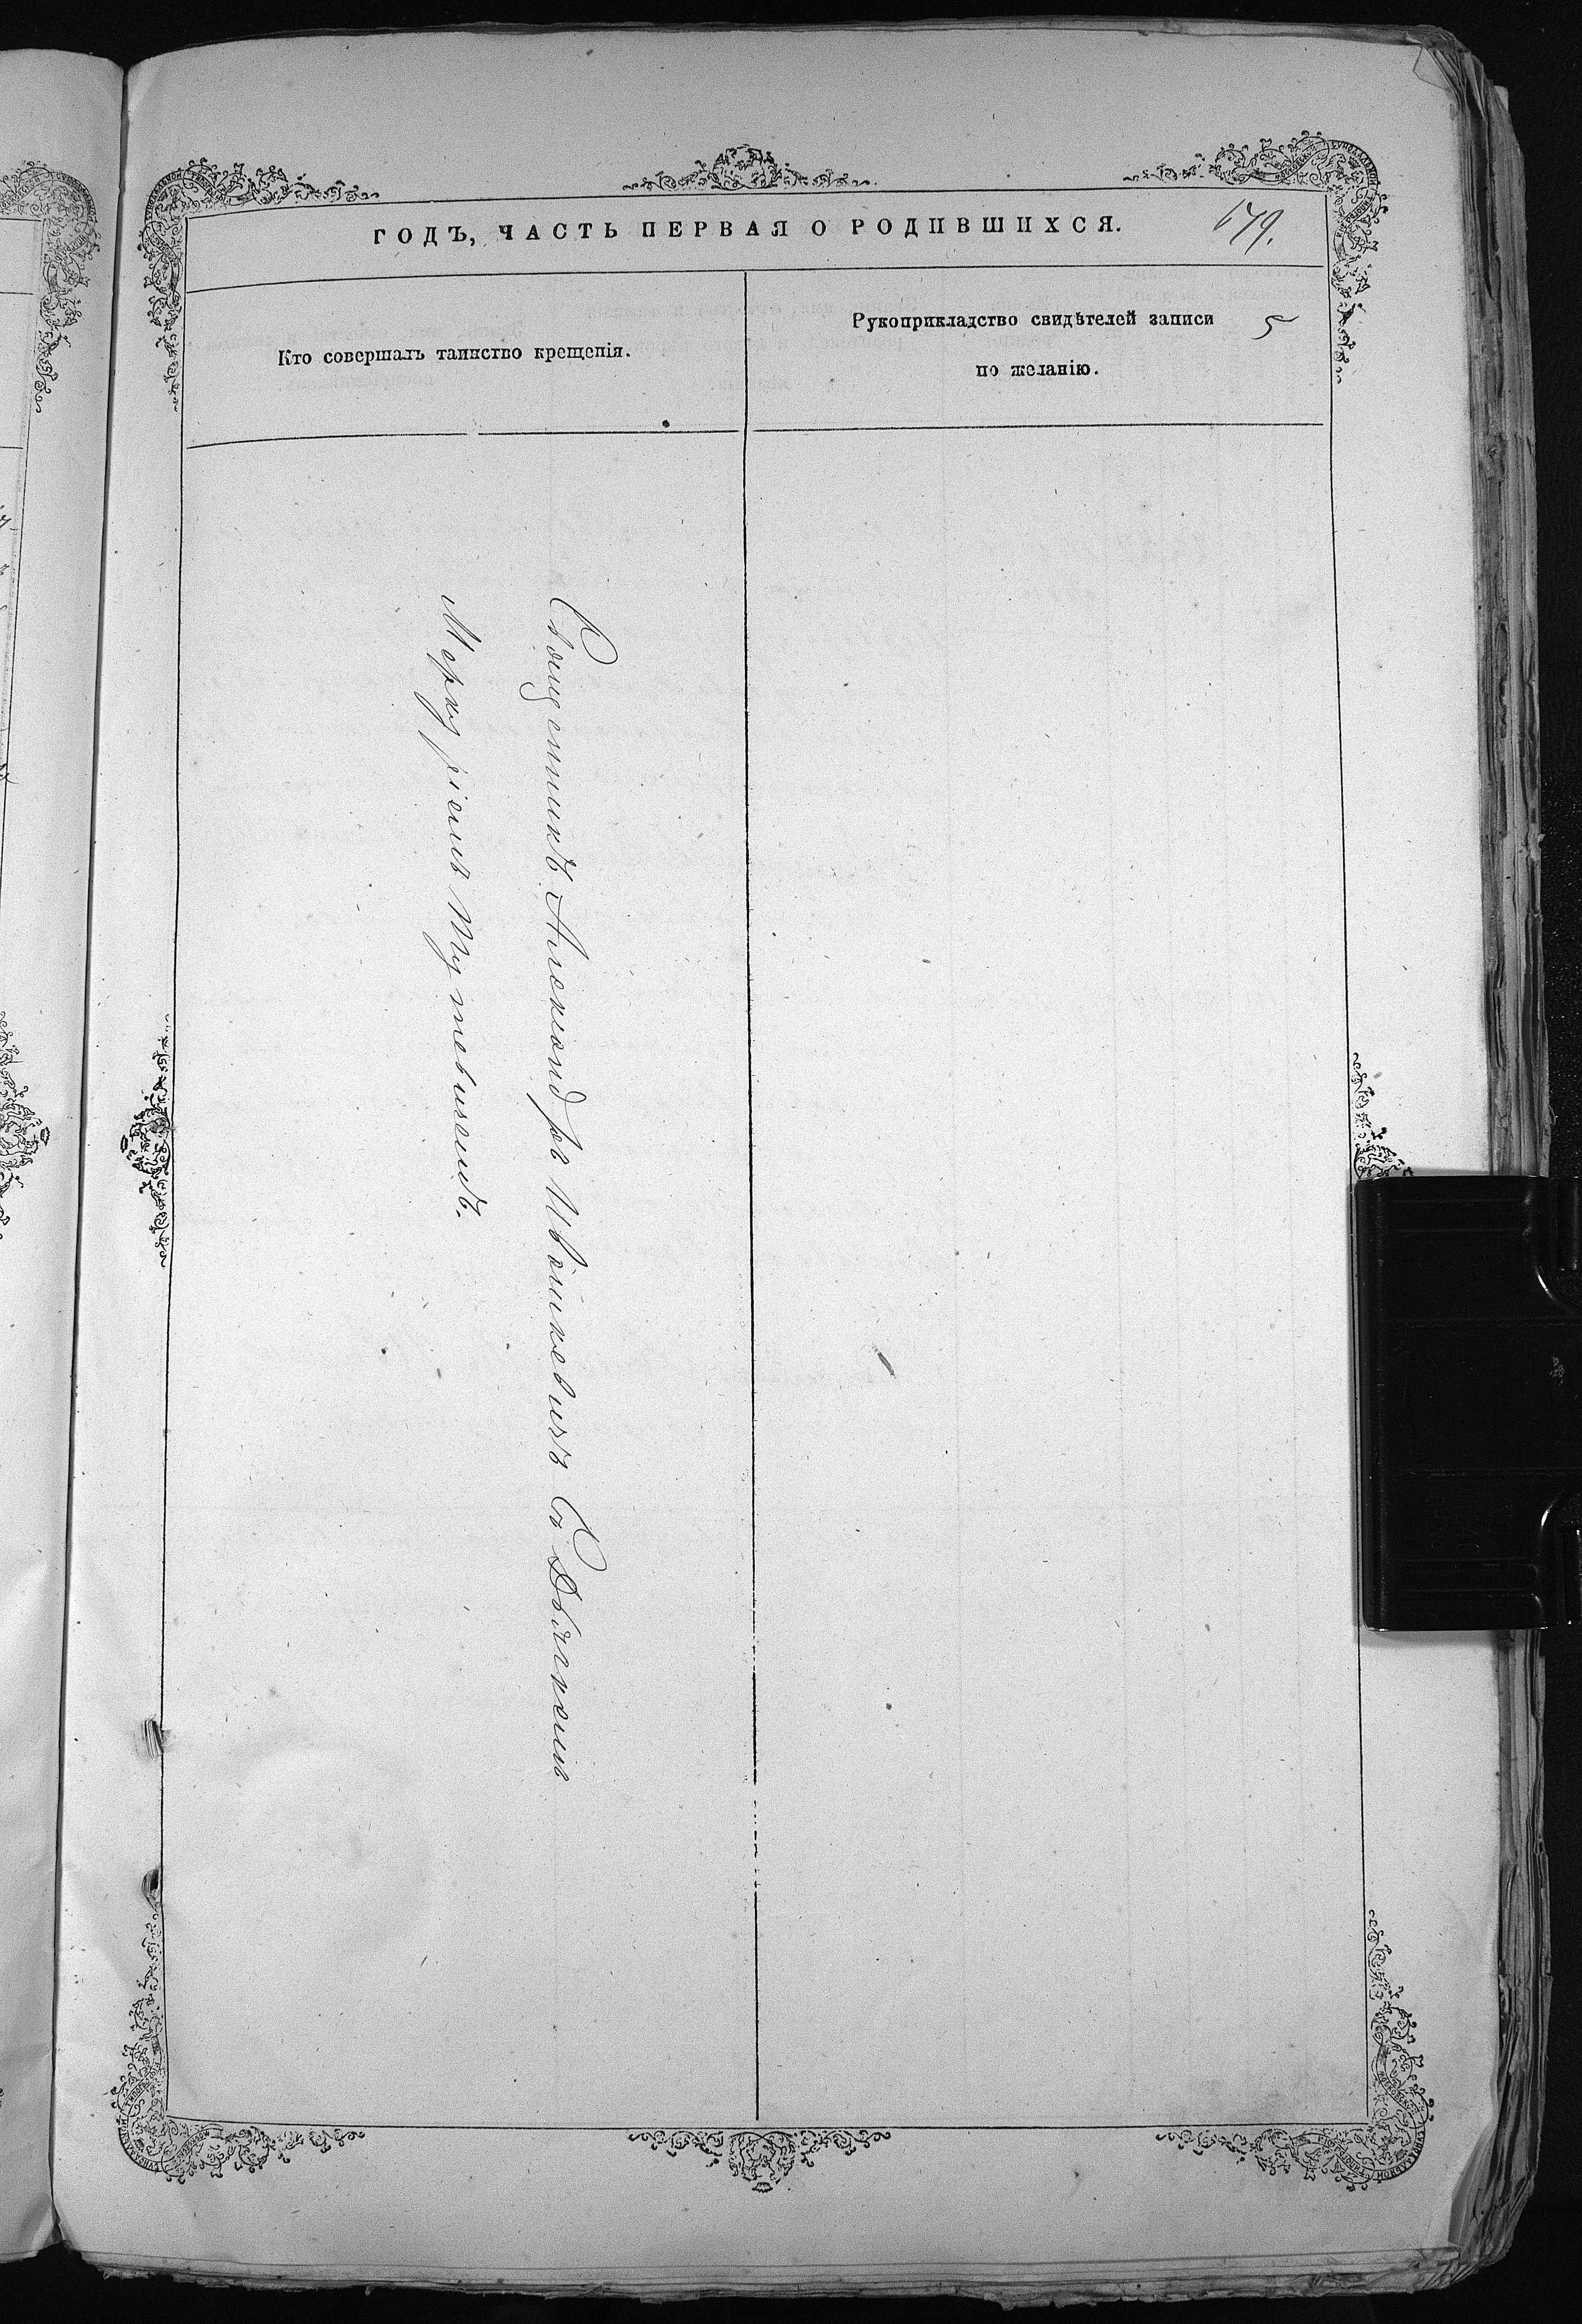 ГОДЪ, ЧАСТЬ ПЕРВАЯ О РОДИВШИХСЯ.
679.
Кто совершалъ таинство крещенія.
Рукоприкладство свидѣтелей записи
по желанію.
5
Священникъ Александръ Ивашкевичъ съ Дьячкомъ
Меркуріемъ Тутевичемъ.